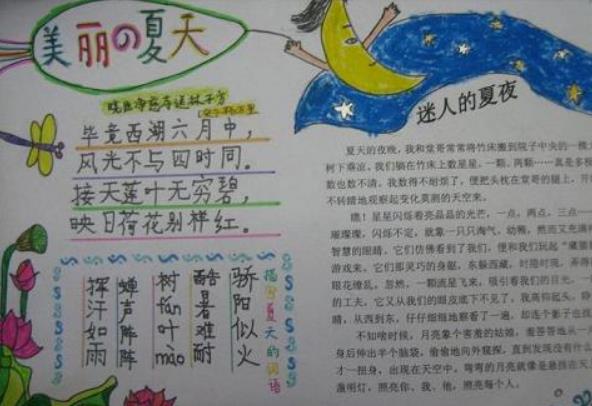 美丽の夏天
晓出净慈寺送林子方
杨万里
毕竟西湖六月中，
风光不与四时同。
接天莲叶无穷碧，
映日荷花别样红。
描写夏天的词语
骄阳似火
酷暑难耐
树fán叶mào
蝉声阵阵
挥汗如雨
迷人的夏夜
夏天的夜晚，我和堂哥常常将竹床搬到院子中央的一棵
树下乘凉，我们躺在竹床上数星星，一颗，两颗……真是多极
数也数不清。我数得不耐烦了，便把头枕在堂哥的腿上，开
不转睛地观察起变化莫测的天空来。
瞧！星星闪烁着亮晶晶的光芒，一点，两点，三点——
璀璨璨，闪烁不定，就象一只只淘气，幼稚，然而又充满
智慧的眼睛，它们仿佛看到了我们，便和我们玩起“藏猫
游戏来，它们那灵巧的身躯，东躲西藏，时隐时现，弄得
眼花缭乱，忽然，一颗流星飞来，吸引着我们的目光，一
的工夫，它又从我们的眼皮底下不见了，我高仰起头，睁
睛，从西到东，仔仔细细地察看了一遍，却连个影子也找
不知啥时候，月亮象个害羞的姑娘，羞答答地从一
身后伸出半个脑袋，偷偷地向外窥探，直到发现没有什么
才一扭身，出现在天空中，弯弯的月亮就像是悬挂在天
盏明灯，照亮你、我、他，照亮每个人。